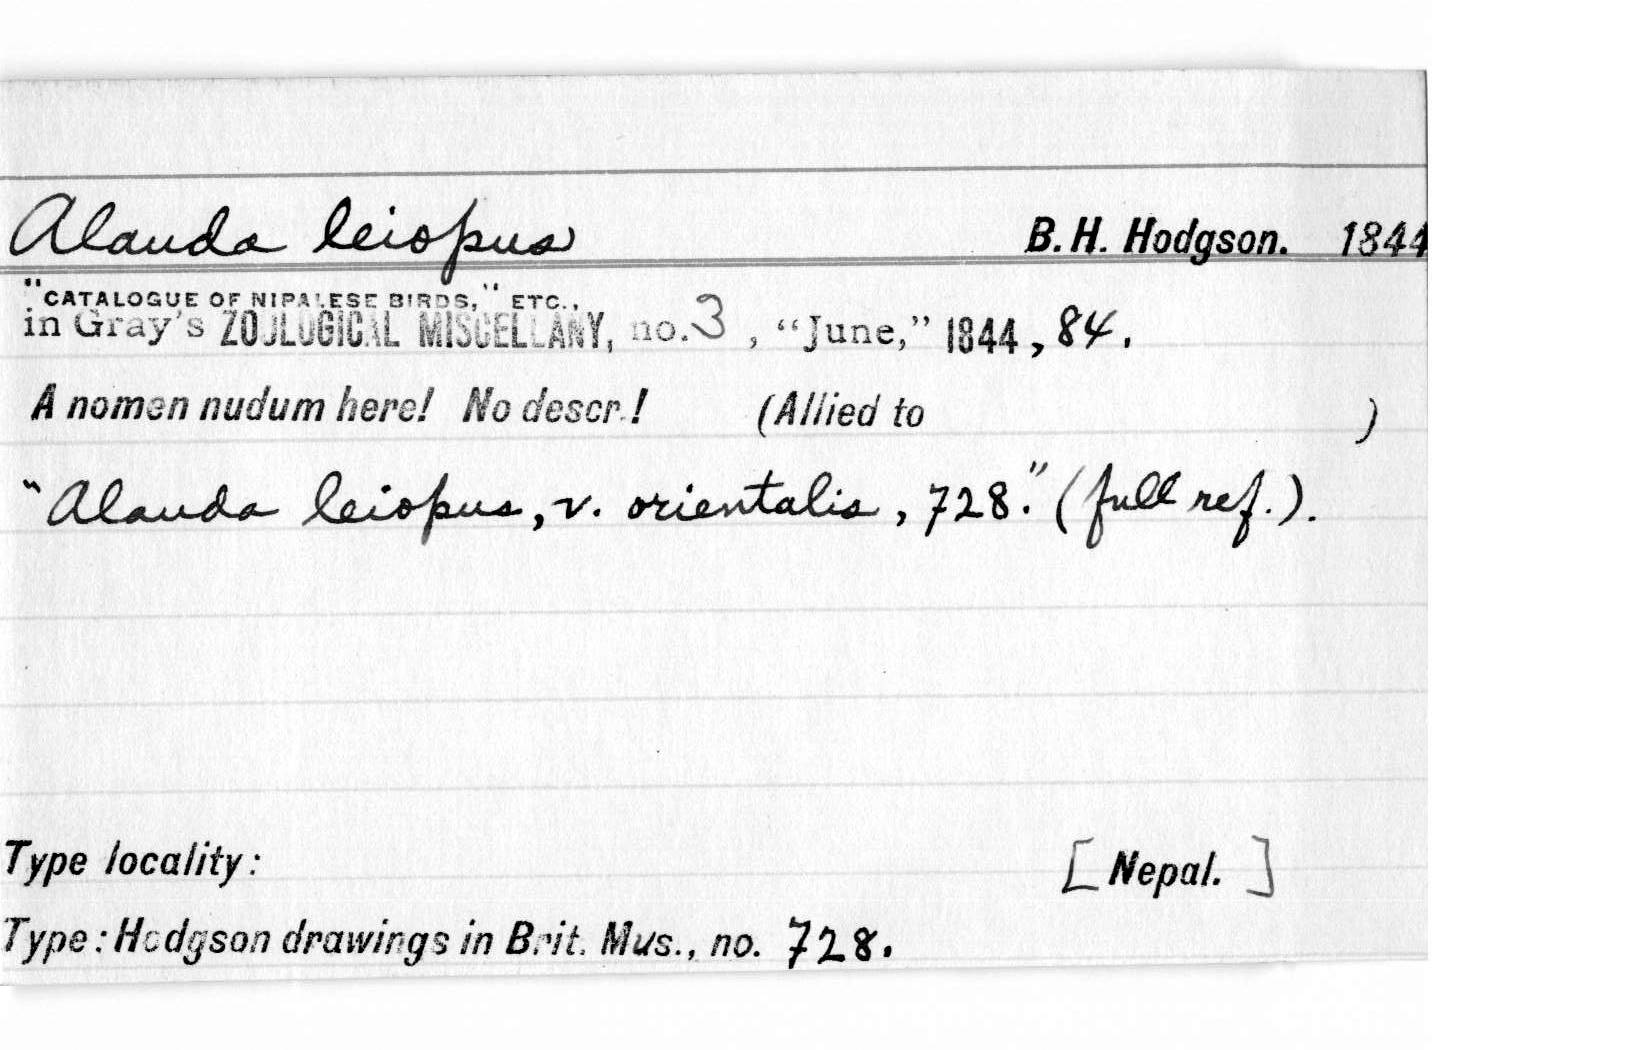 Alauda leiopus B. H. Hodgson. 1844
"CATALOGUE OF NIPALESE BIRDS," ETC.,
in Gray's ZOOLOGICAL MISCELLANY, no. 3, "June," 1844, 84.
A nomen nudum here! No descr.! (Allied to )
"Alauda leiopus, v. orientalis, 728." (full ref.).
Type locality: [Nepal.]
Type: Hodgson drawings in Brit. Mus., no. 728.